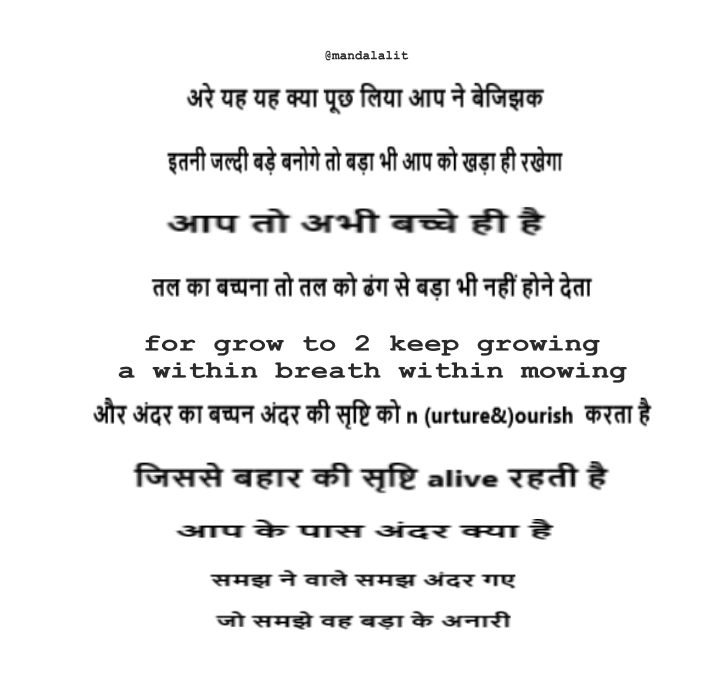 @mandalalit
अरे यह यह क्या पूछ लिया आप ने बेजिझक
इतनी जल्दी बड़े बनोगे तो बड़ा भी आप को खड़ा ही रखेगा
आप तो अभी बच्चे ही है
तल का बच्पना तो तल को ढंग से बड़ा भी नहीं होने देता
for grow to 2 keep growing
a within breath within mowing
और अंदर का बच्पन अंदर की सृष्टि को n (urture&)ourish करता है
जिससे बहार की सृष्टि alive रहती है
आप के पास अंदर क्या है
समझ ने वाले समझ अंदर गए
जो समझे वह बड़ा के अनारी